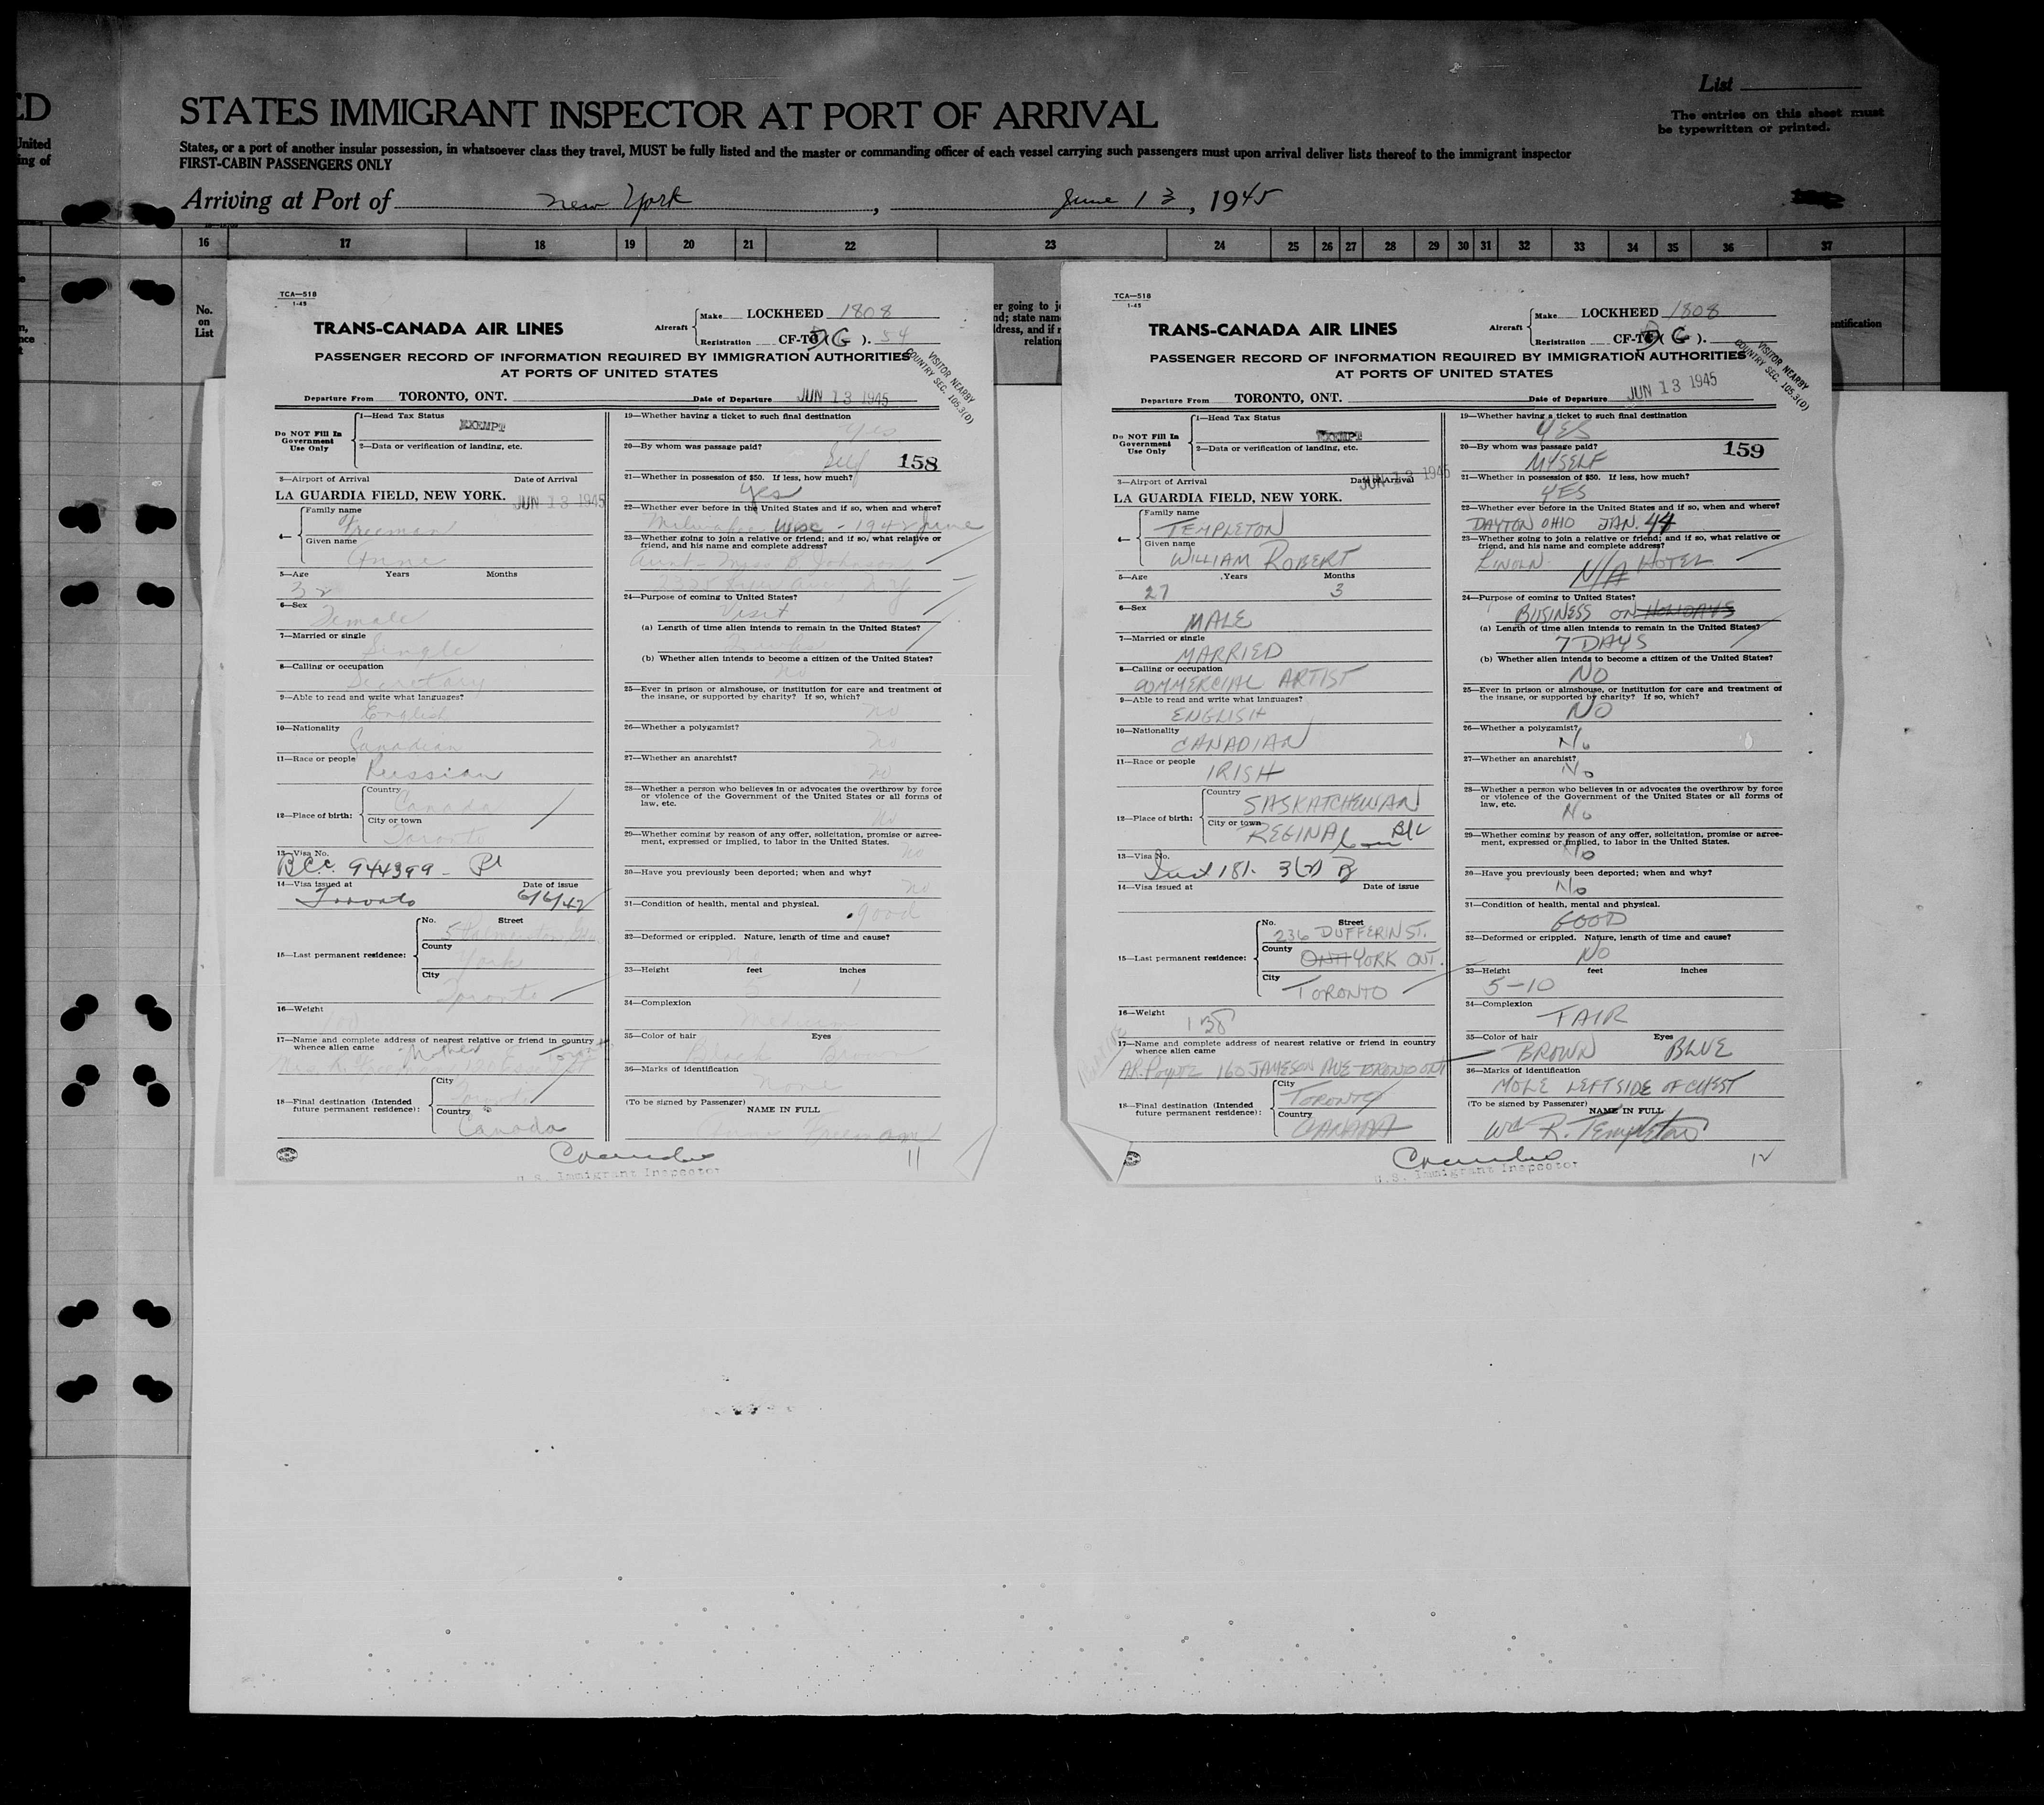 ED
STATES IMMIGRANT INSPECTOR AT PORT OF ARRIVAL
List
The entries on this sheet must
be typewritten or printed.
United
ing of
States, or a port of another insular possession, in whatsoever class they travel, MUST be fully listed and the master or commanding officer of each vessel carrying such passengers must upon arrival deliver lists thereof to the immigrant inspector
FIRST-CABIN PASSENGERS ONLY
Arriving at Port of New York, June 13, 1945
16 17 18 19 20 21 22 23 24 25 26 27 28 29 30 31 32 33 34 35 36 37
No.
on
List
TCA—518
1-45
TRANS-CANADA AIR LINES
Aircraft
Make LOCKHEED 1808
Registration CF-TC (G). 54
PASSENGER RECORD OF INFORMATION REQUIRED BY IMMIGRATION AUTHORITIES
AT PORTS OF UNITED STATES
VISITOR NEARBY
COUNTRY SEC. 105.3(D)
Departure From TORONTO, ONT. Date of Departure JUN 13 1945
Do NOT Fill In
Government
Use Only
1—Head Tax Status
EXEMPT
2—Data or verification of landing, etc.
3—Airport of Arrival Date of Arrival
LA GUARDIA FIELD, NEW YORK. JUN 13 1945
4—
Family name
Freeman
Given name
Anne
5—Age Years Months
32
6—Sex
Female
7—Married or single
Single
8—Calling or occupation
Secretary
9—Able to read and write what languages?
English
10—Nationality
Canadian
11—Race or people
Russian
12—Place of birth:
Country
Canada
City or town
Toronto
13—Visa No.
B.C.C. 944399
14—Visa issued at Date of issue
Toronto 6/6/42
15—Last permanent residence:
No. Street
Palmerston
County
York
City
Toronto
16—Weight
100
17—Name and complete address of nearest relative or friend in country
whence alien came
Mother
18—Final destination (Intended
future permanent residence):
City
Toronto
Country
Canada
19—Whether having a ticket to such final destination
Yes
20—By whom was passage paid?
Self 158
21—Whether in possession of $50. If less, how much?
yes
22—Whether ever before in the United States and if so, when and where?
Milwaukee Wisc - 1942 June
23—Whether going to join a relative or friend; and if so, what relative or
friend, and his name and complete address?
Aunt - Miss B. Johnson
24—Purpose of coming to United States?
Visit
(a) Length of time alien intends to remain in the United States?
(b) Whether alien intends to become a citizen of the United States?
No
25—Ever in prison or almshouse, or institution for care and treatment of
the insane, or supported by charity? If so, which?
no
26—Whether a polygamist?
no
27—Whether an anarchist?
no
28—Whether a person who believes in or advocates the overthrow by force
or violence of the Government of the United States or all forms of
law, etc.
no
29—Whether coming by reason of any offer, solicitation, promise or agree-
ment, expressed or implied, to labor in the United States.
no
30—Have you previously been deported; when and why?
no
31—Condition of health, mental and physical.
good
32—Deformed or crippled. Nature, length of time and cause?
33—Height feet inches
5 1
34—Complexion
Medium
35—Color of hair Eyes
Black Brown
36—Marks of identification
none
(To be signed by Passenger)
NAME IN FULL
Anne Freeman
U.S. Immigrant Inspector
11
TCA—518
1-45
TRANS-CANADA AIR LINES
Aircraft
Make LOCKHEED 1808
Registration CF-TC (G).
PASSENGER RECORD OF INFORMATION REQUIRED BY IMMIGRATION AUTHORITIES
AT PORTS OF UNITED STATES
VISITOR NEARBY
COUNTRY SEC. 105.3(D)
Departure From TORONTO, ONT. Date of Departure JUN 13 1945
Do NOT Fill In
Government
Use Only
1—Head Tax Status
EXEMPT
2—Data or verification of landing, etc.
3—Airport of Arrival Date of Arrival
LA GUARDIA FIELD, NEW YORK. JUN 13 1945
4—
Family name
TEMPLETON
Given name
WILLIAM ROBERT
5—Age Years Months
27 3
6—Sex
MALE
7—Married or single
MARRIED
8—Calling or occupation
COMMERCIAL ARTIST
9—Able to read and write what languages?
ENGLISH
10—Nationality
CANADIAN
11—Race or people
IRISH
12—Place of birth:
Country
SASKATCHEWAN
City or town
REGINA B/C
13—Visa No.
3(2) B
14—Visa issued at Date of issue
15—Last permanent residence:
No. Street
236 DUFFERIN ST.
County
ONT YORK ONT.
City
TORONTO
16—Weight
138
17—Name and complete address of nearest relative or friend in country
whence alien came
A.R. POYNTZ 160 JAMESON AVE TORONTO ONT
18—Final destination (Intended
future permanent residence):
City
TORONTO
Country
CANADA
19—Whether having a ticket to such final destination
YES
20—By whom was passage paid?
MYSELF 159
21—Whether in possession of $50. If less, how much?
YES
22—Whether ever before in the United States and if so, when and where?
DAYTON OHIO JAN. 44
23—Whether going to join a relative or friend; and if so, what relative or
friend, and his name and complete address?
LINCOLN N/A HOTEL
24—Purpose of coming to United States?
BUSINESS ON HOLIDAYS
(a) Length of time alien intends to remain in the United States?
7 DAYS
(b) Whether alien intends to become a citizen of the United States?
NO
25—Ever in prison or almshouse, or institution for care and treatment of
the insane, or supported by charity? If so, which?
NO
26—Whether a polygamist?
No
27—Whether an anarchist?
No
28—Whether a person who believes in or advocates the overthrow by force
or violence of the Government of the United States or all forms of
law, etc.
No
29—Whether coming by reason of any offer, solicitation, promise or agree-
ment, expressed or implied, to labor in the United States.
No
30—Have you previously been deported; when and why?
No
31—Condition of health, mental and physical.
GOOD
32—Deformed or crippled. Nature, length of time and cause?
NO
33—Height feet inches
5-10
34—Complexion
FAIR
35—Color of hair Eyes
BROWN BLUE
36—Marks of identification
MOLE LEFT SIDE OF CHEST
(To be signed by Passenger)
NAME IN FULL
Wm R. Templeton
U.S. Immigrant Inspector
12